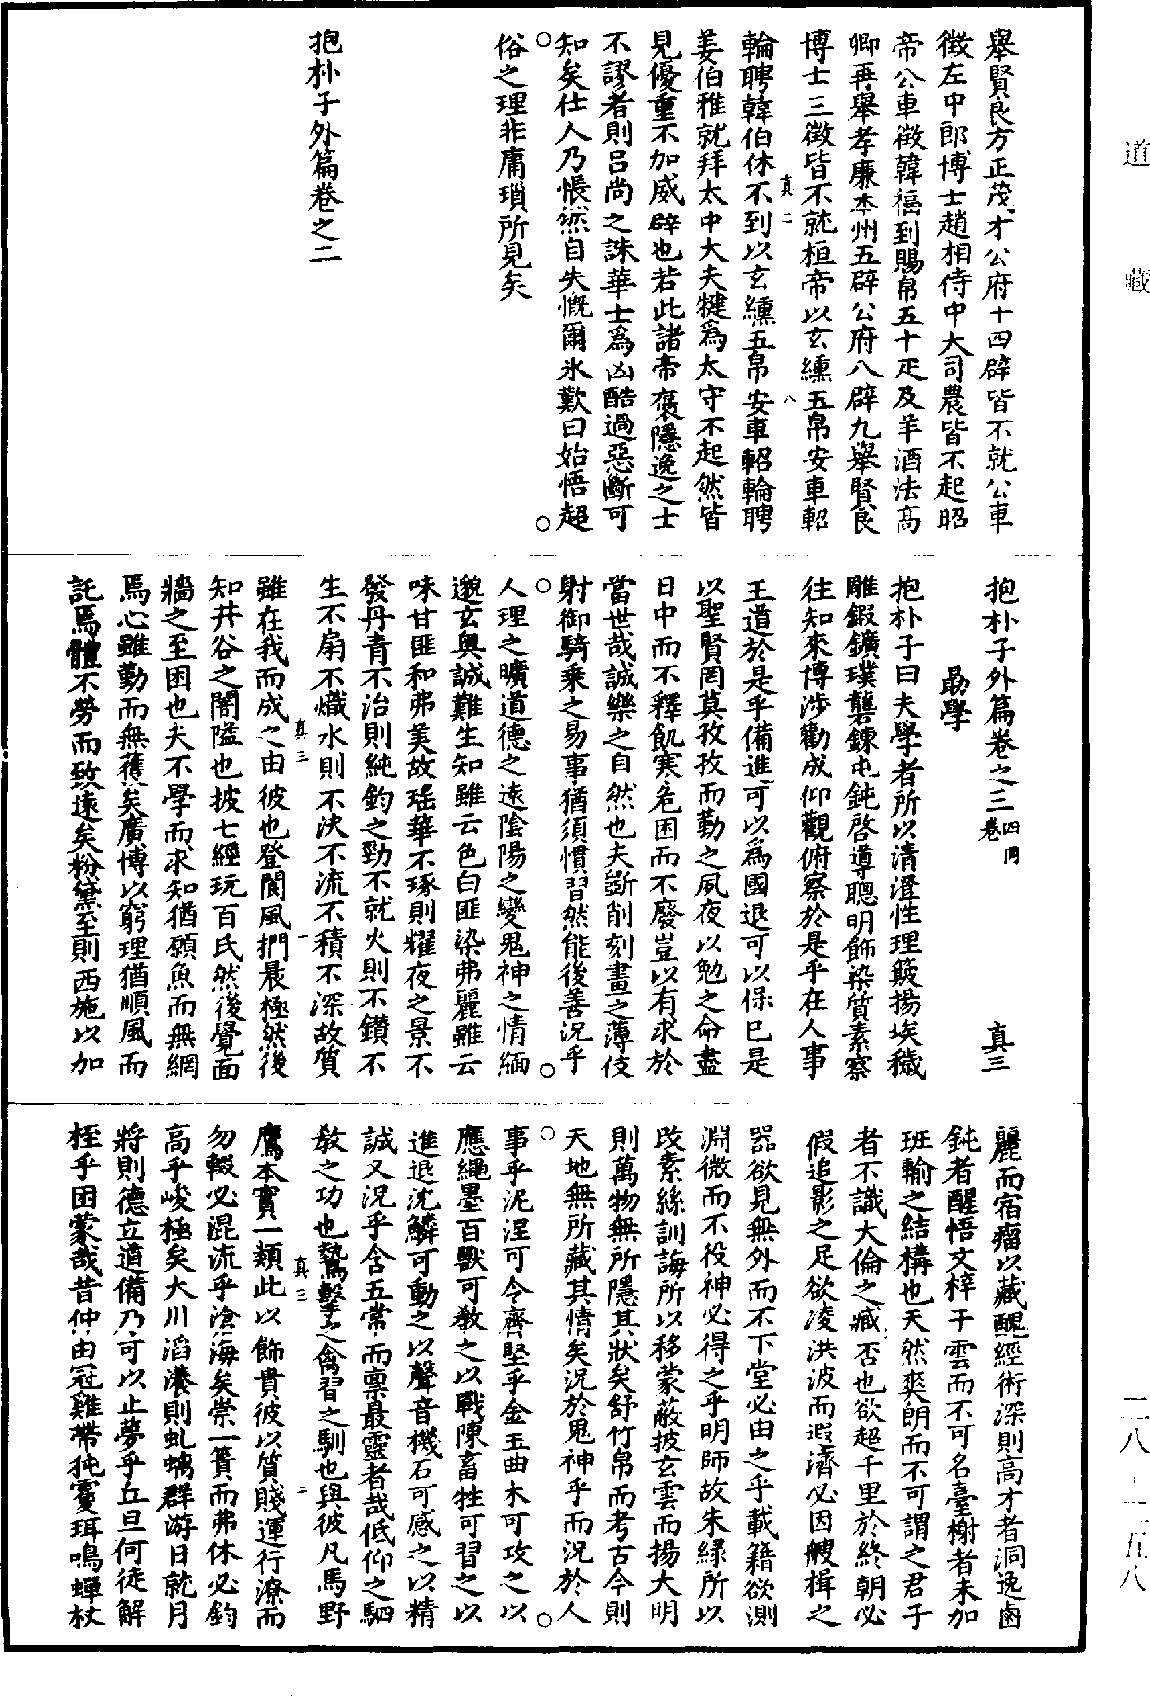 道藏
舉賢良方正茂才公府十四辟皆不就公車
徵左中郎博士趙相侍中大司農皆不起昭
帝公車徵韓福到賜帛五十疋及羊酒法高
卿再舉孝廉本州五辟公府八辟九舉賢良
博士三徵皆不就桓帝以玄纁五帛安車軺
真二
八
輪聘韓伯休不到以玄纁五帛安車軺輪聘
姜伯雅就拜太中大夫犍為太守不起然皆
見優重不加威辟也若此諸帝褒隱逸之士
不謬者則呂尚之誅華士為凶酷過惡斷可
知矣仕人乃悵然自失慨爾永歎曰始悟超
俗之理非庸瑣所見矣
抱朴子外篇卷之二
抱朴子外篇卷之三 四同卷 真三
勗學
抱朴子曰夫學者所以清澄性理簸揚埃穢
雕鍛鑛璞礱鍊屯鈍啓導聰明飾染質素察
往知來博涉勸成仰觀俯察於是乎在人事
王道於是乎備進可以為國退可以保己是
以聖賢罔莫孜孜而勤之夙夜以勉之命盡
日中而不釋飢寒危困而不廢豈以有求於
當世哉誠樂之自然也夫斲削刻畫之薄伎
射御騎乘之易事猶須慣習然能後善況乎
人理之曠道德之遠陰陽之變鬼神之情緬
邈玄奧誠難生知雖云色白匪染弗麗雖云
味甘匪和弗美故瑤華不琢則耀夜之景不
發丹青不治則純鈞之勁不就火則不鑽不
生不扇不熾水則不決不流不積不深故質
真三
一
雖在我而成之由彼也登閬風捫晨極然後
知井谷之闇隘也披七經玩百氏然後覺面
牆之至困也夫不學而求知猶願魚而無網
焉心雖勤而無獲矣廣博以窮理猶順風而
託焉體不勞而致遠矣粉黛至則西施以加
麗而宿瘤以藏醜經術深則高才者洞逸鹵
鈍者醒悟文梓干雲而不可名臺榭者未加
班輸之結構也天然爽朗而不可謂之君子
者不識大倫之臧否也欲超千里於終朝必
假追影之足欲淩洪波而遐濟必因艘楫之
器欲見無外而不下堂必由之乎載籍欲測
淵微而不役神必得之乎明師故朱綠所以
改素絲訓誨所以移蒙蔽披玄雲而揚大明
則萬物無所隱其狀矣舒竹帛而考古今則
天地無所藏其情矣況於鬼神乎而況於人
事乎泥涅可令齊堅乎金玉曲木可攻之以
應繩墨百獸可教之以戰陳畜牲可習之以
進退沈鱗可動之以聲音機石可感之以精
誠又況乎含五常而禀最靈者哉低仰之駟
教之功也鷙擊之禽習之馴也與彼凡馬野
真三
二
鷹本實一類此以飾貴彼以質賤運行潦而
勿輟必混流乎滄海矣崇一簣而弗休必鈞
高乎峻極矣大川滔瀁則虬螭群游日就月
將則德立道備乃可以止夢乎丘旦何徒解
桎乎困蒙哉昔仲由冠雞帶㹠霍珥鳴蟬杖
二八—二五八